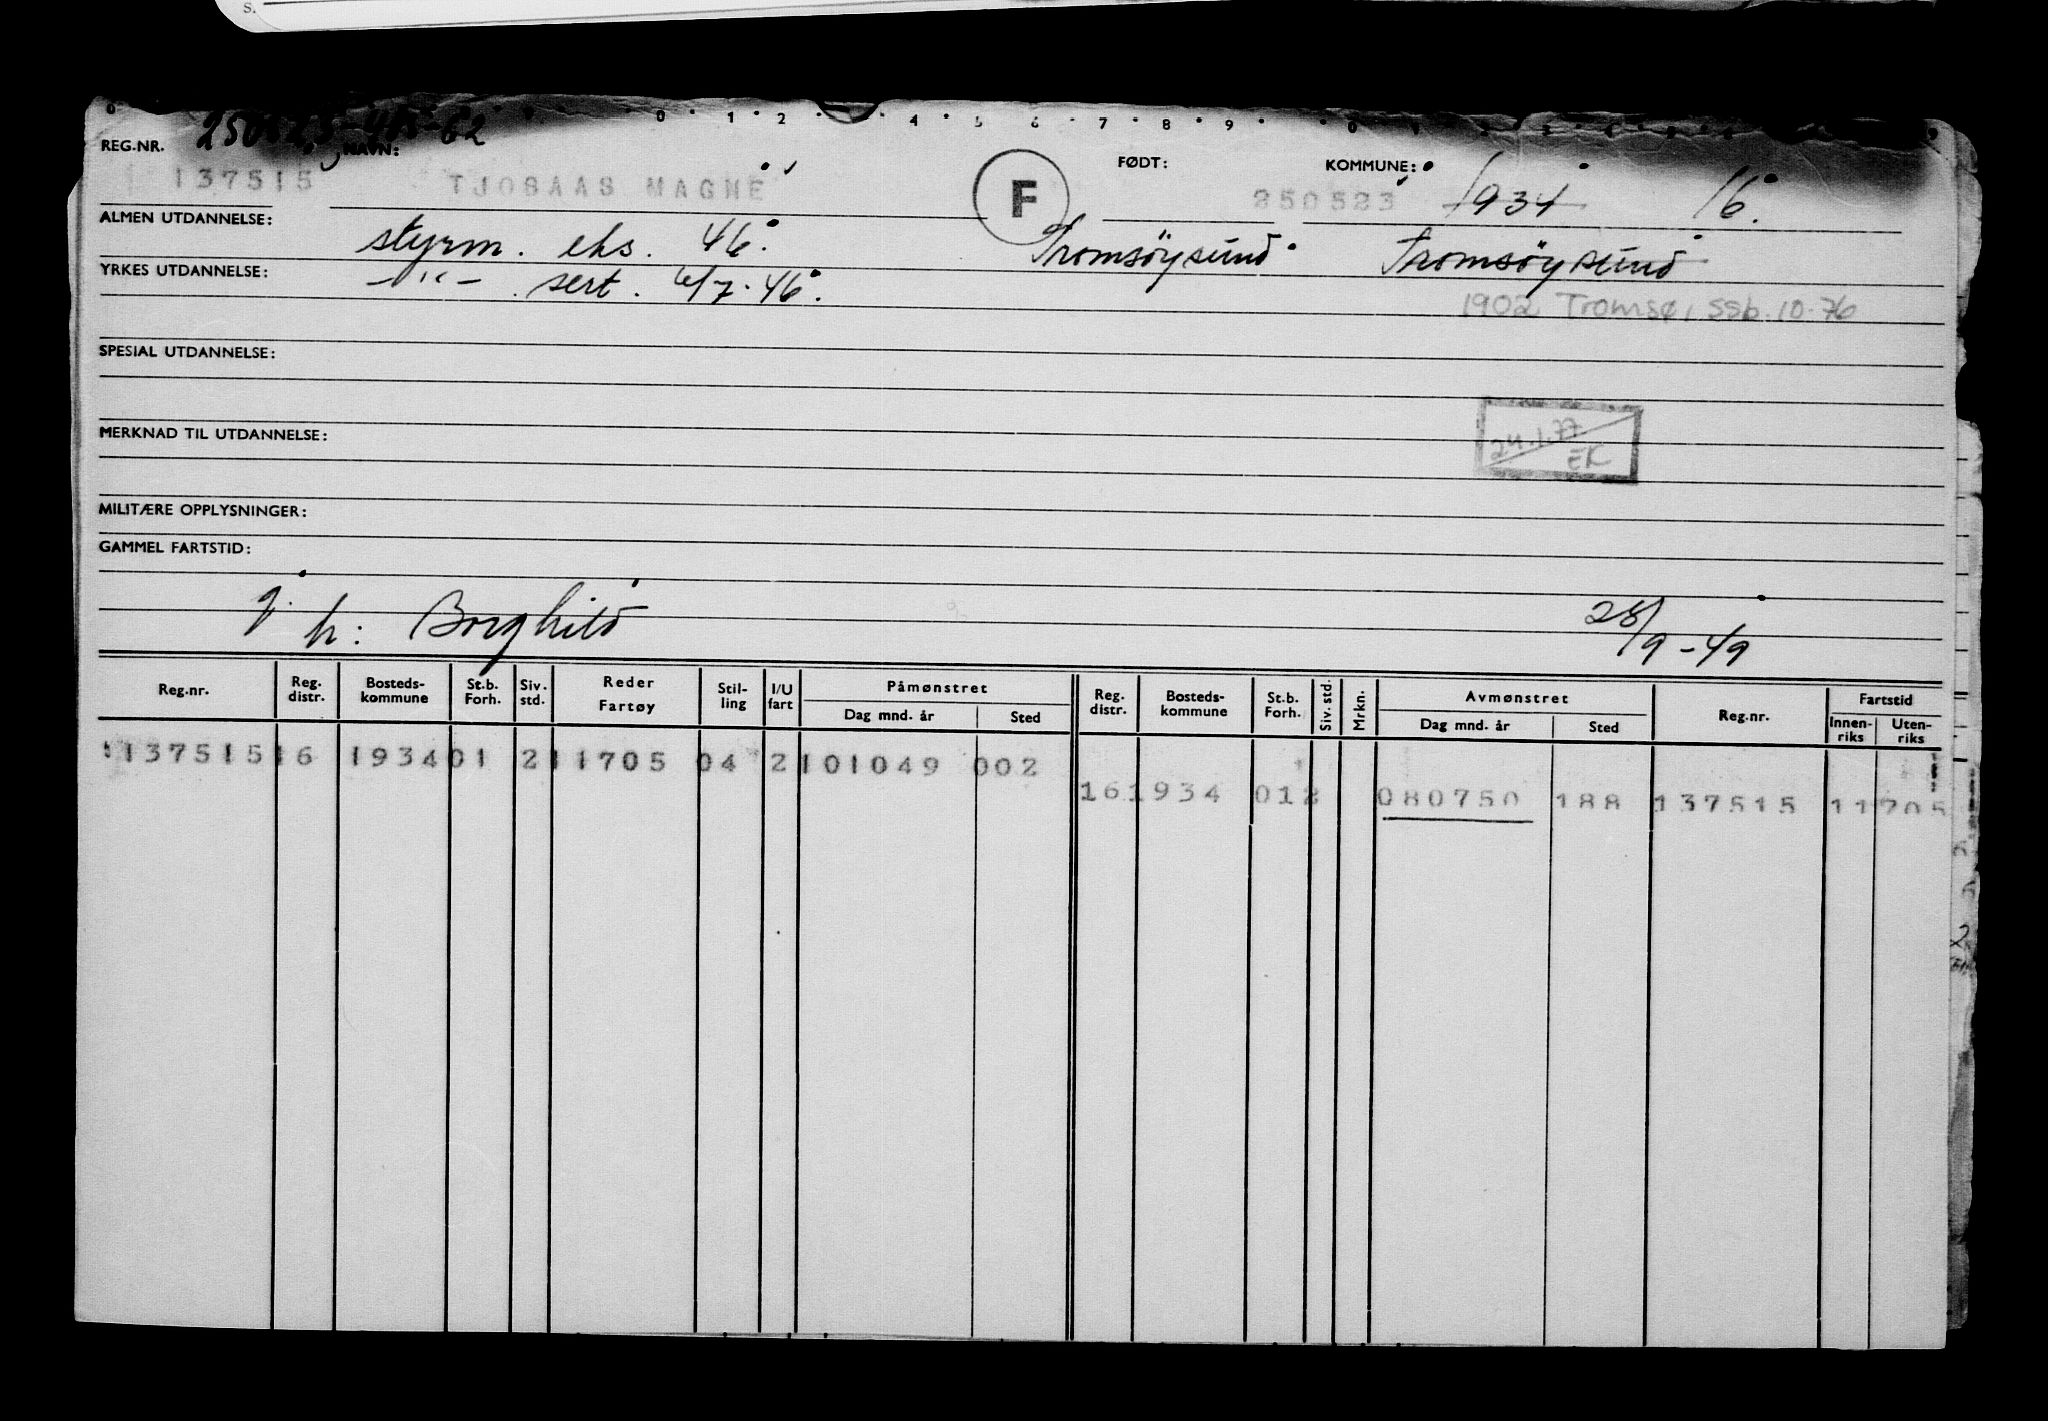 S.
0 1 2 4 5 6 7 8 9
REG.NR. NAVN: FØDT: KOMMUNE:
137515 TJOSAAS MAGNE F 250523 1934 16.
ALMEN UTDANNELSE: styrm. eks. 46. Tromsøysund Tromsøysund
YRKES UTDANNELSE: -"- sert. 6/7.46.
1902 Tromsø, SSb. 10-76
SPESIAL UTDANNELSE:
24.1.77
EK
MERKNAD TIL UTDANNELSE:
MILITÆRE OPPLYSNINGER:
GAMMEL FARTSTID:
h: Borghild 28/9-49
Reg.nr. Reg. distr. Bosteds-kommune St.b. Forh. Siv. std. Reder Fartøy Stil-ling I/U fart Påmønstret Dag mnd. år Sted Reg. distr. Bosteds-kommune St.b. Forh. Siv. std. Mrkn. Avmønstret Dag mnd. år Sted Reg.nr. Fartstid Innen-riks Uten-riks
137515 16 1934 01 2 11705 04 2 101049 002
16 1934 01 2 080750 188 137515 11705